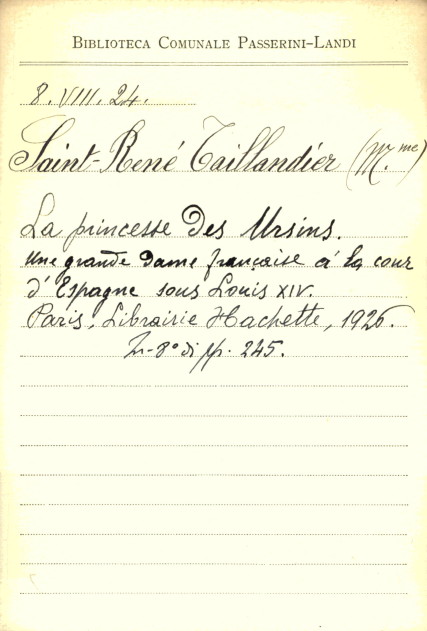 BIBLIOTECA COMUNALE PASSERINI-LANDI
8. VIII. 24.
Saint-René Taillandier (M.me)
La princesse des Ursins.
Une grande dame française à la cour
d'Espagne sous Louis XIV.
Paris, Librairie Hachette, 1926.
In-8° di pp. 245.